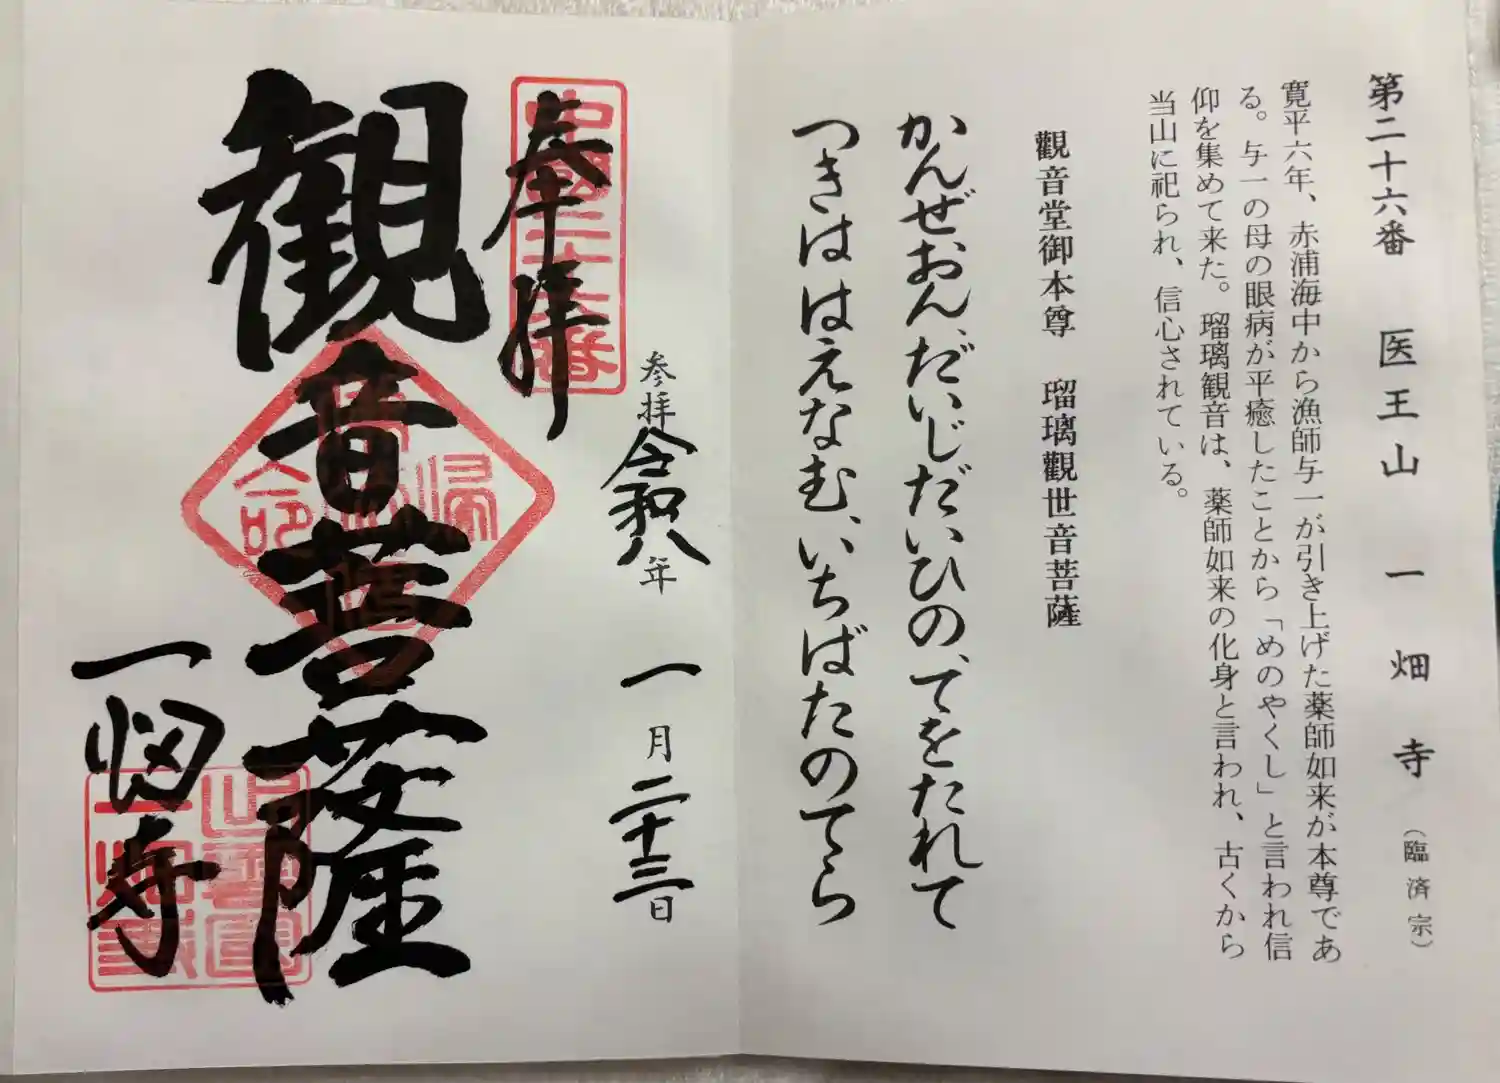 第二十六番 医王山 一畑寺 （臨済宗）
寛平六年、赤浦海中から漁師与一が引き上げた薬師如来が本尊であ
る。与一の母の眼病が平癒したことから「めのやくし」と言われ信
仰を集めて来た。瑠璃観音は、薬師如来の化身と言われ、古くから
当山に祀られ、信心されている。
觀音堂御本尊 瑠璃觀世音菩薩
かんぜおん、だいじだいひの、てをたれて
つきははえなむ、いちばたのてら
参拝 令和八年 一月二十三日
奉拝
観音菩薩
一畑寺